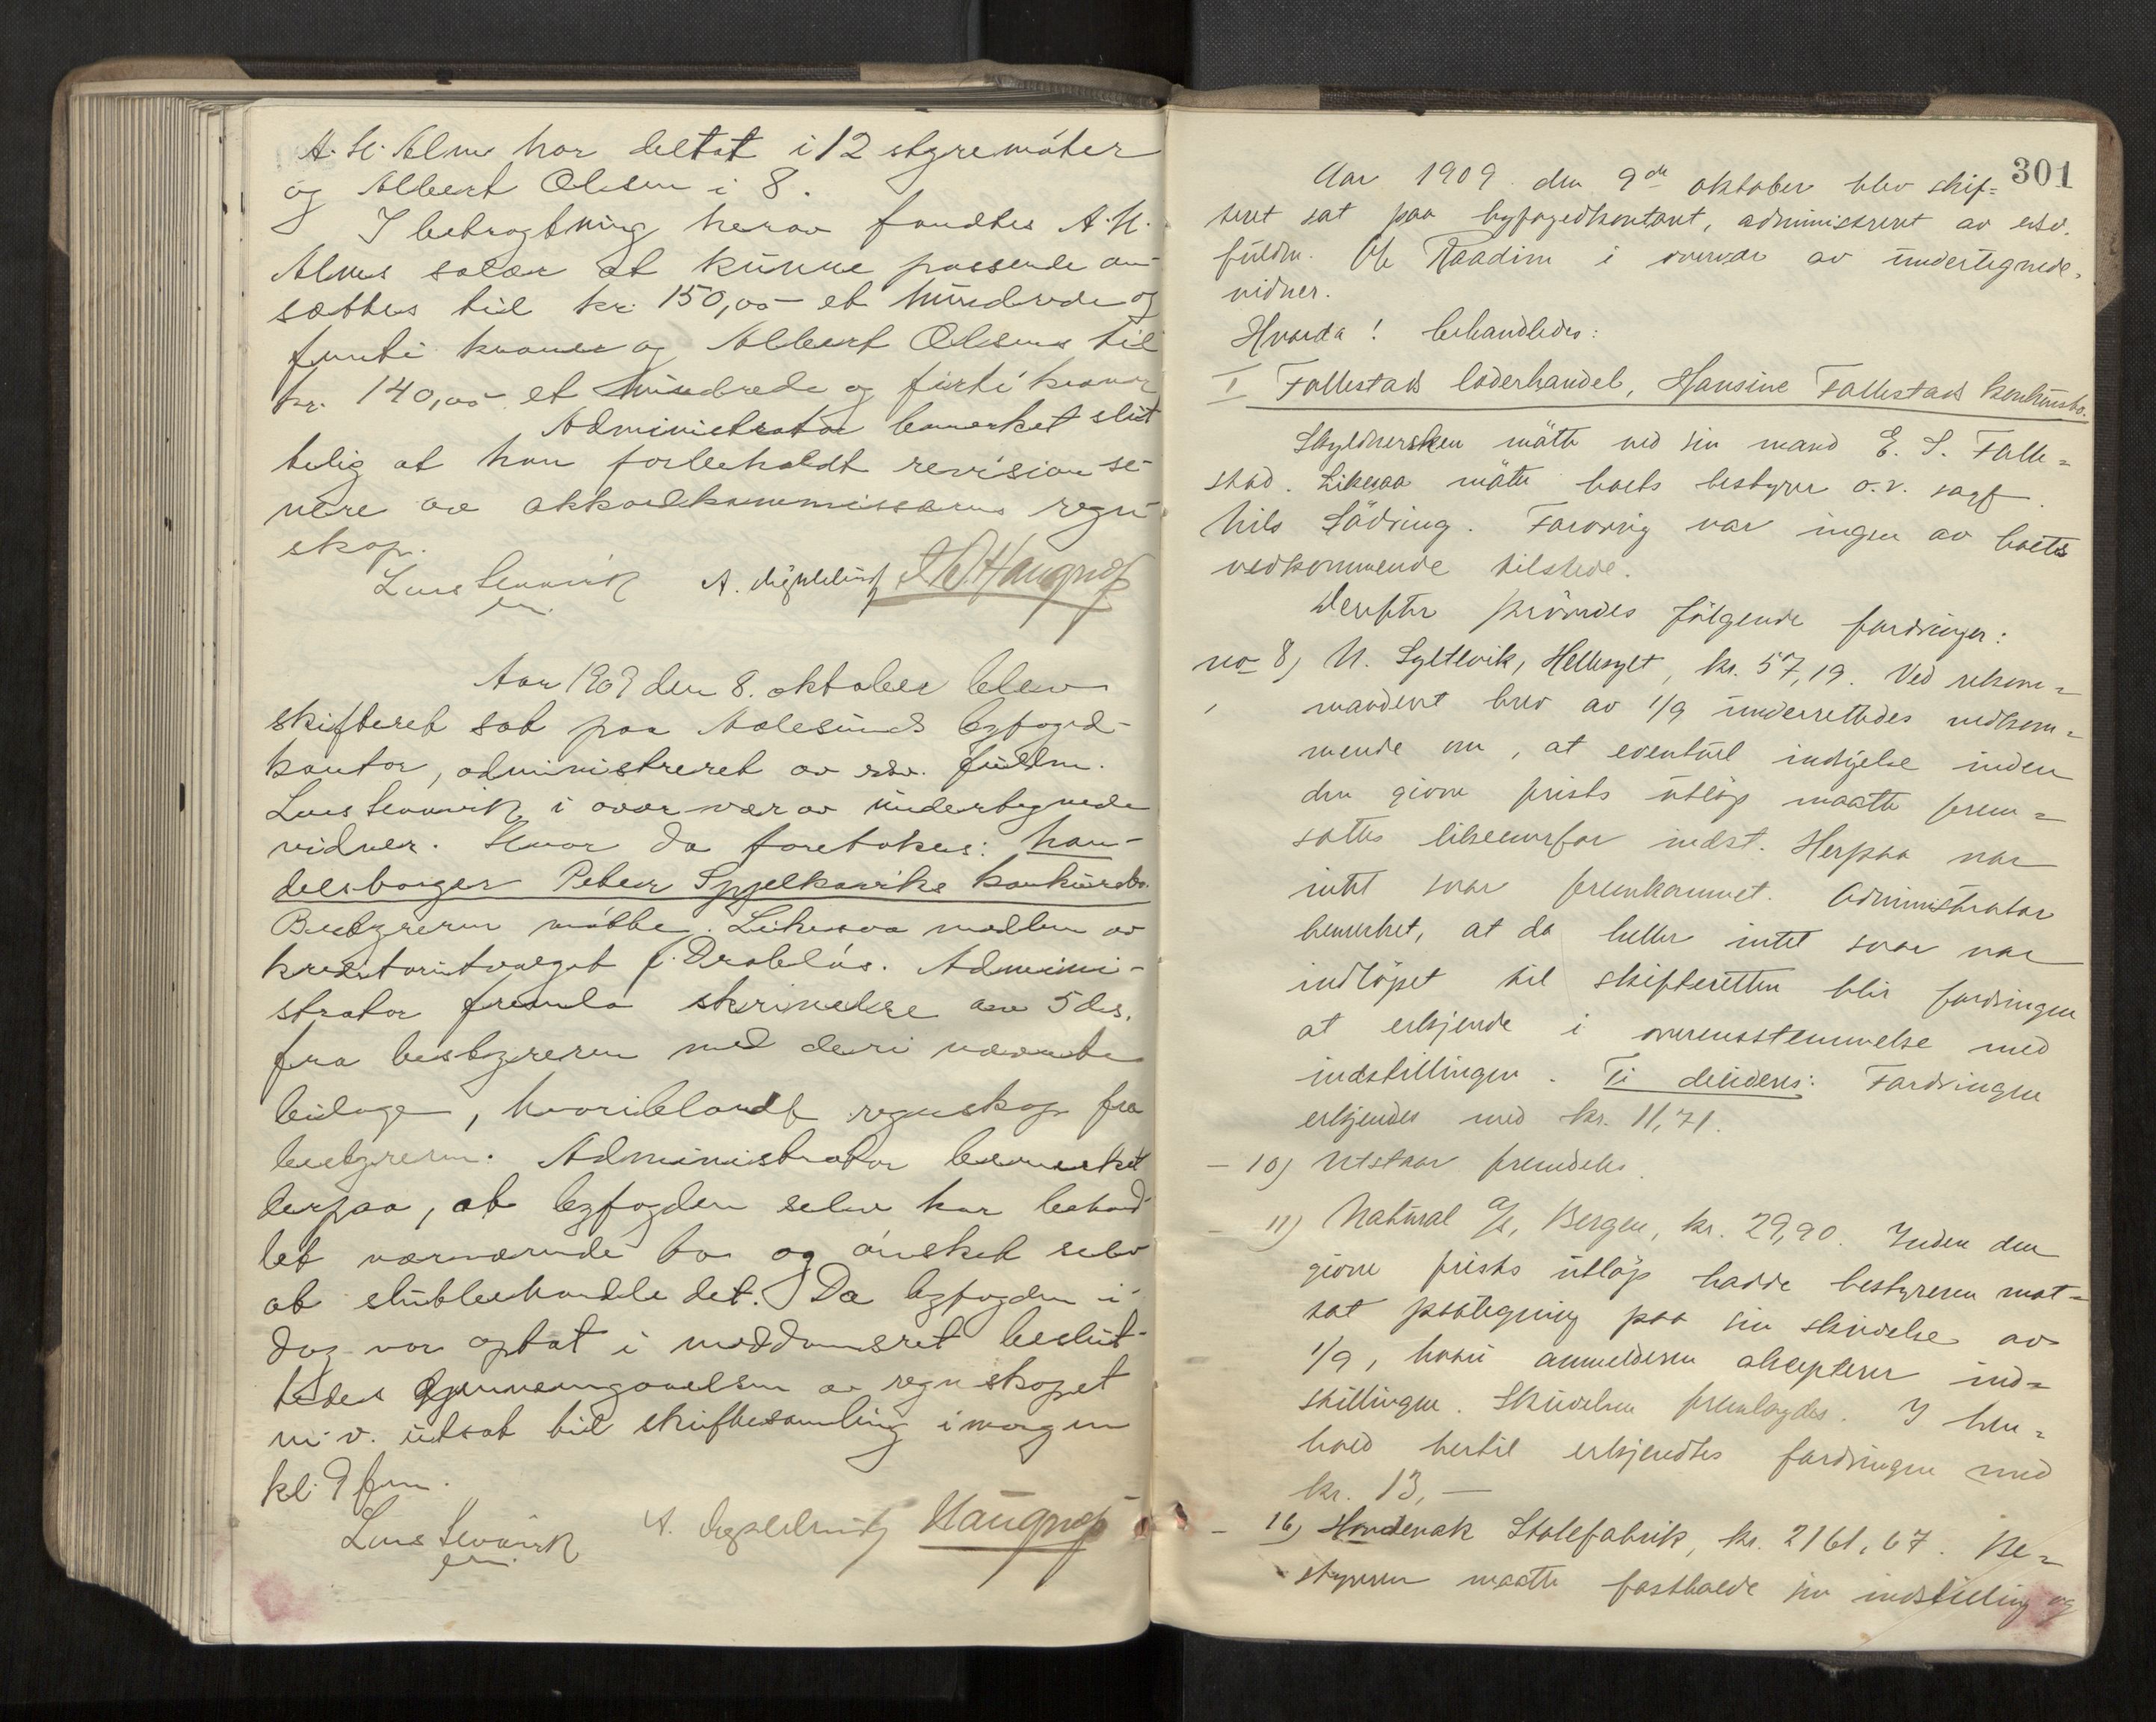 A. H. Alme har deltat i 12 styremøter
og Albert Olsen i 8.
I betragtning herav fandtes A. H.
Almes salær at kunne passende an-
sættes til kr. 150,00 et hundrede og
femti kroner og Albert Olsens til
kr. 140,00 et hundrede og firti kroner
Administrator bemerket slut
telig at han forbeholdt revision se-
nere av akkordkommissærens regn-
skap.
Lars
em.
Aar 1909 den 8. oktober blev
skifteret sat paa Aalesunds byfoged-
kontor, administreret av edsv. fuldm.
Lars i overvær av undertegnede
vidner. Hvor da foretokes: han-
delsborger Peter Spjelkaviks konkursbo.
Bestyreren møtte. Likesaa medlem av
kreditorutvalget J. Drabløs. Admini-
strator fremla skrivelse av 5 ds.
fra bestyreren med deri nævnte
bilager, hvoriblandt regnskap fra
bestyreren. Administrator bemerket
derpaa, at byfogden selv har behand-
let nærværende bo og ønsket selv
at slutbehandle det. Da byfogden i
dag var optat i meddomsret beslut-
tedes gjennemgaaelsen av regnskapet
m. v. utsat til skiftesamling imorgen
kl. 9 fm.
Lars
em.
301
Aar 1909 den 9de oktober blev skif=
teret sat paa byfogedkontoret, administreret av edsv.
fuldm. Ole Raadim i overvær av undertegnede
vidner.
Hvorda! behandledes:
I Fallestads læderhandel, Hansine Fallestads konkursbo.
Skyldnersken møtte ved sin mand E. S. Falle=
stad. Likesaa møtte boets bestyrer o.r. sagf.
Nils Sødring. Forøvrig var ingen av boets
vedkommende tilstede.
Derefter prøvedes følgende fordringer:
no 8) N. Syltevik, Hellesylt, kr. 57,19. Ved rekom=
manderet brev av 1/9 underrettedes vedkom=
mende om, at eventuel indsigelse inden
den givne frists utløp maatte frem=
sættes likeoverfor indst. Herpaa var
intet svar fremkommet. Administrator
bemerket, at da heller intet svar var
indløpet til skifteretten blir fordringen
at erkjende i overensstemmelse med
indstillingen. Ti decideres: Fordringen
erkjendes med kr. 11,71.
- 10) Utstaar fremdeles.
- 11) Natural A/S, Bergen, kr. 29,90. Inden den
givne frists utløp hadde bestyreren mot=
tat paategning paa sin skrivelse av
1/9, hvori anmelderen aksepterer ind=
stillingen. Skrivelsen fremlagdes. I hen=
hold hertil erkjendtes fordringen med
kr. 13,—
- 16) Hovdenak Stolefabrik, kr. 2161,67. Be=
styreren maatte fastholde sin indstilling og